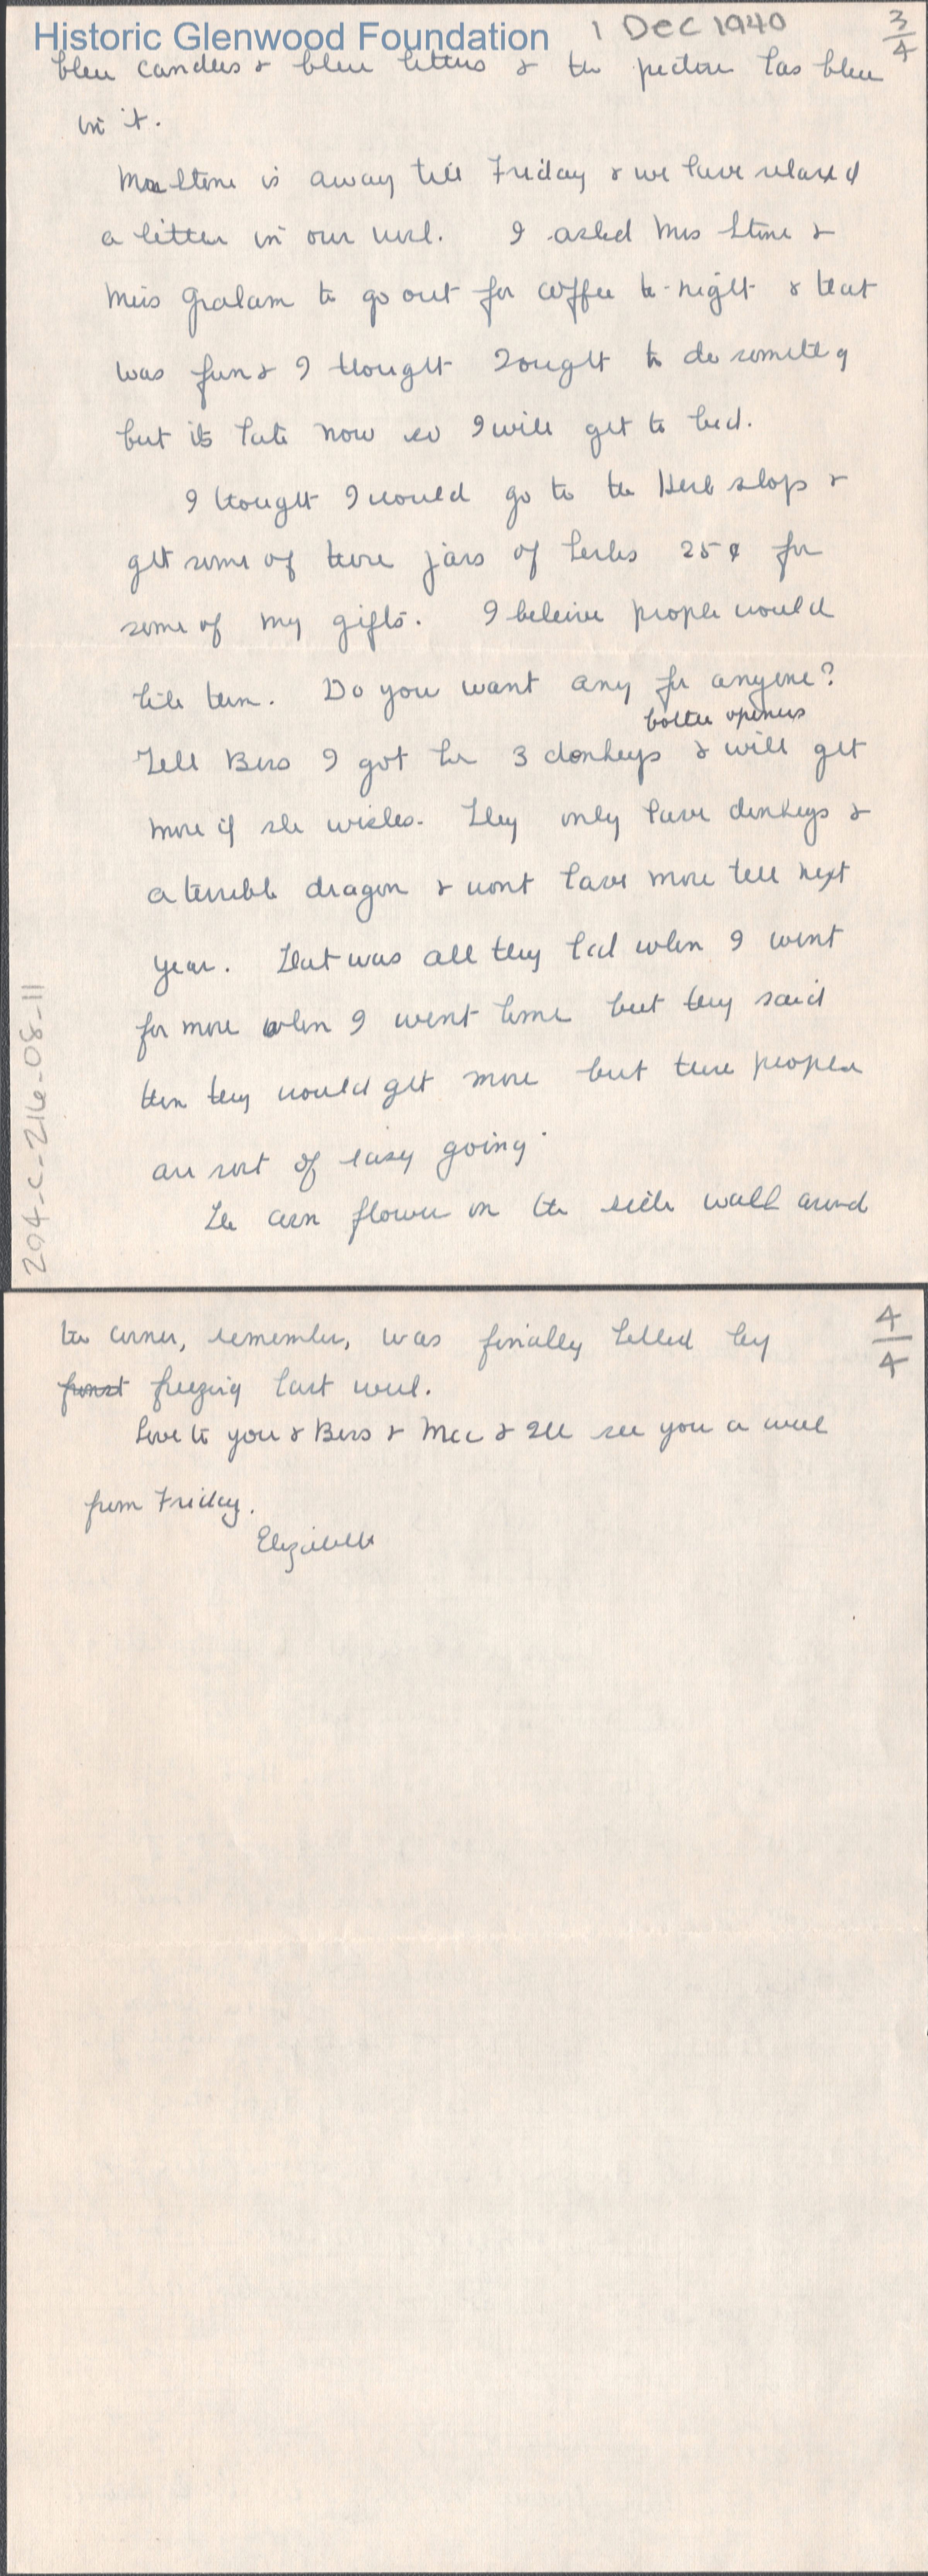 Historic Glenwood Foundation
1 Dec 1940
3/4
blue candles & blue letters & the picture has blue
in it.
Mr Stone is away till Friday & we have relaxed
a little in our work. I asked Mrs Stone &
Miss Graham to go out for coffee to-night & that
was fun & I thought I ought to do something
but its late now so I will get to bed.
I thought I would go to the Herb shop &
get some of these jars of herbs 25¢ for
some of my gifts. I beleive people would
like them. Do you want any for anyone?
bottle openers
Tell Bess I got her 3 donkeys & will get
more if she wishes. They only have donkeys &
a terrible dragon & wont have more till next
year. That was all they had when I went
for more when I went home but they said
then they would get more but these people
are sort of easy going.
The corn flower on the side walk around
294-C-216-08-11
4/4
the corner, remember, was finally killed by
frost freezing last week.
Love to you & Bess & Mac & I'll see you a week
from Friday.
Elizabeth